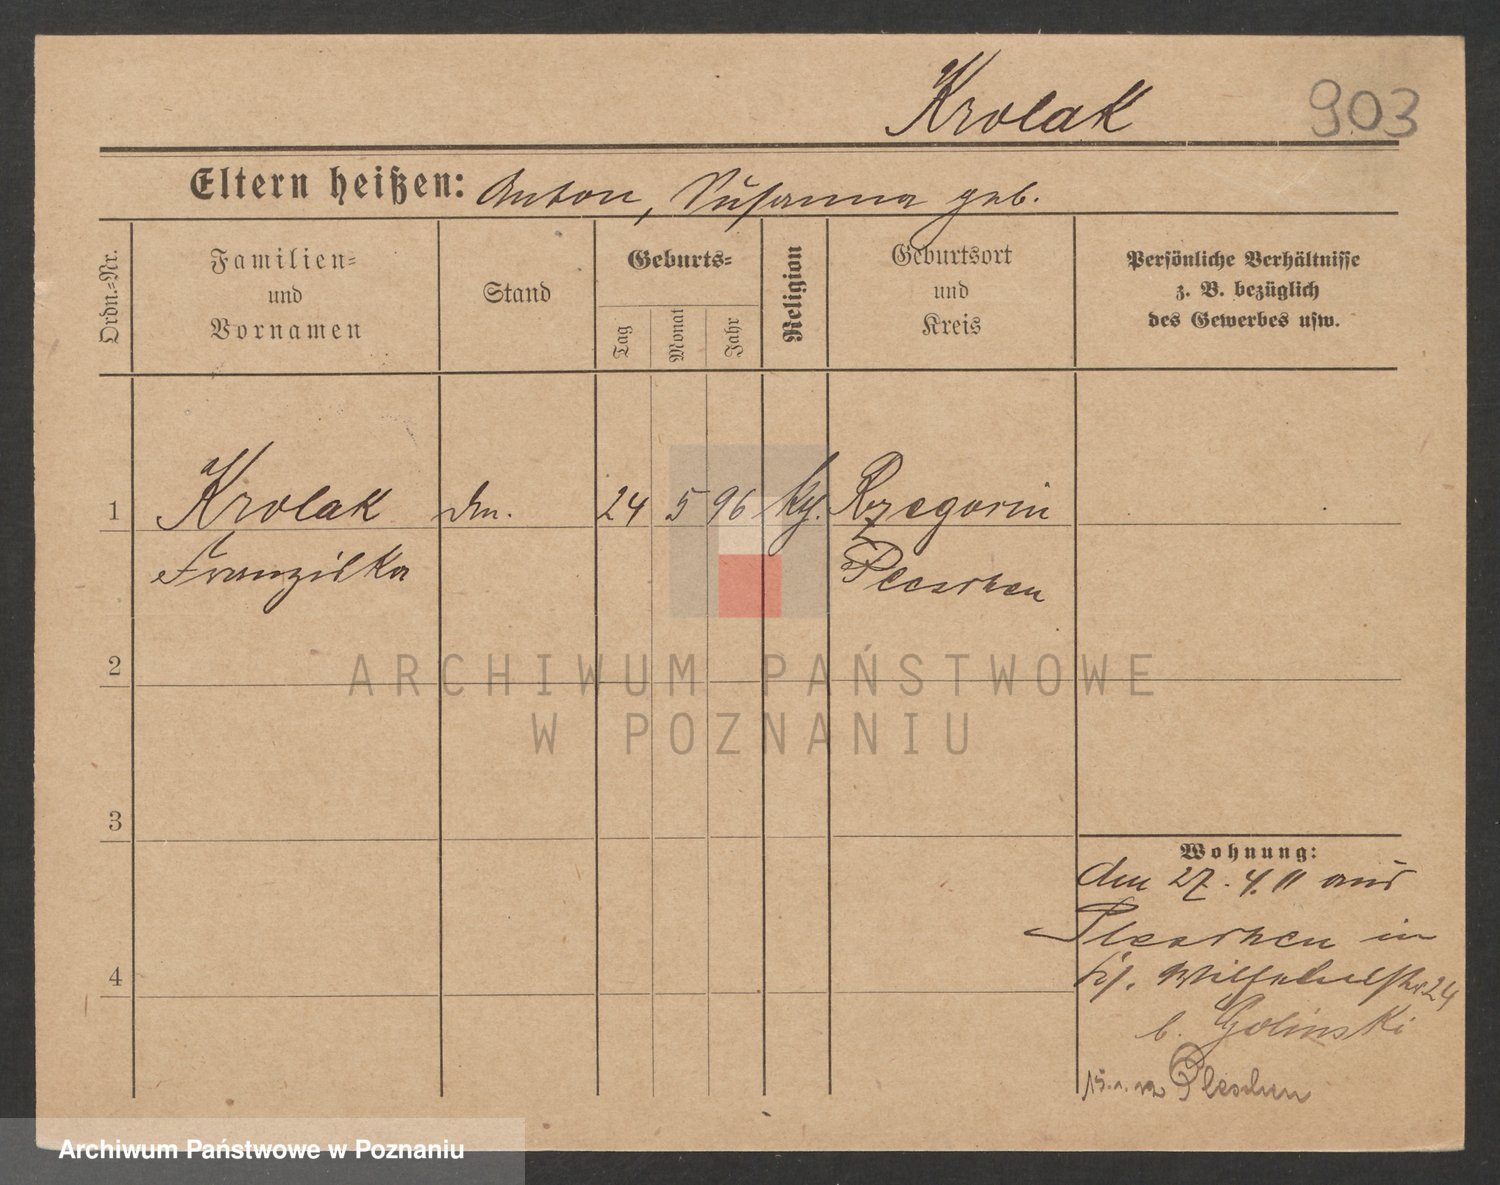 Krolak 903
Eltern heißen: Anton, Susanna geb.
Ordn.=Nr.
Familien=
und
Vornamen
Stand
Geburts=
Tag
Monat
Jahr
Religion
Geburtsort
und
Kreis
Persönliche Verhältnisse
z. B. bezüglich
des Gewerbes usw.
1 Krolak 24 5 96 Rzegorin
Franziska Pleschen
2
3
4
Wohnung:
den 27. 4. 11 aus
Pleschen in
Wilhelmstr 24
b. Golinski
Pleschen
ARCHIWUM PAŃSTWOWE
W POZNANIU
Archiwum Państwowe w Poznaniu